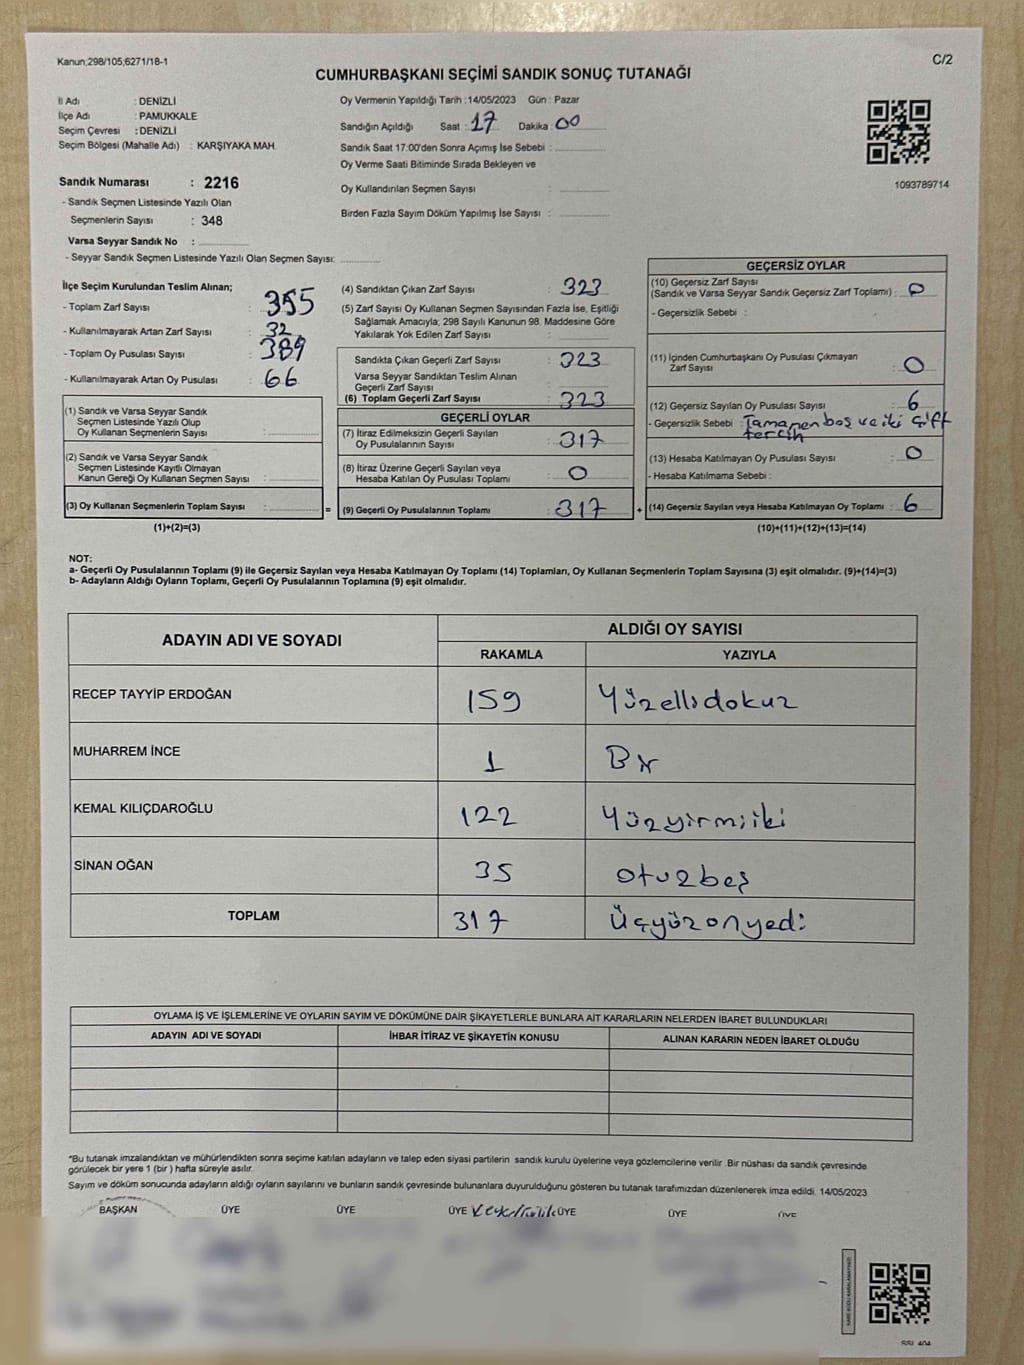 Kanun;298/105;6271/18-1
C/2
CUMHURBAŞKANI SEÇİMİ SANDIK SONUÇ TUTANAĞI
İl Adı : DENİZLİ
İlçe Adı : PAMUKKALE
Seçim Çevresi : DENİZLİ
Seçim Bölgesi (Mahalle Adı) : KARŞIYAKA MAH.
Sandık Numarası : 2216
- Sandık Seçmen Listesinde Yazılı Olan
Seçmenlerin Sayısı : 348
Varsa Seyyar Sandık No :
- Seyyar Sandık Seçmen Listesinde Yazılı Olan Seçmen Sayısı:
Oy Vermenin Yapıldığı Tarih :14/05/2023 Gün : Pazar
Sandığın Açıldığı Saat : 17 Dakika : 00
Sandık Saat 17:00'den Sonra Açımış İse Sebebi :
Oy Verme Saati Bitiminde Sırada Bekleyen ve
Oy Kullandırılan Seçmen Sayısı :
Birden Fazla Sayım Döküm Yapılmış İse Sayısı :
1093789714
İlçe Seçim Kurulundan Teslim Alınan;
- Toplam Zarf Sayısı : 355
- Kullanılmayarak Artan Zarf Sayısı : 32
- Toplam Oy Pusulası Sayısı : 389
- Kullanılmayarak Artan Oy Pusulası : 66
(1) Sandık ve Varsa Seyyar Sandık
Seçmen Listesinde Yazılı Olup
Oy Kullanan Seçmenlerin Sayısı :
(2) Sandık ve Varsa Seyyar Sandık
Seçmen Listesinde Kayıtlı Olmayan
Kanun Gereği Oy Kullanan Seçmen Sayısı :
(3) Oy Kullanan Seçmenlerin Toplam Sayısı : =
(1)+(2)=(3)
(4) Sandıktan Çıkan Zarf Sayısı : 323
(5) Zarf Sayısı Oy Kullanan Seçmen Sayısından Fazla İse, Eşitliği
Sağlamak Amacıyla, 298 Sayılı Kanunun 98. Maddesine Göre
Yakılarak Yok Edilen Zarf Sayısı :
Sandıkta Çıkan Geçerli Zarf Sayısı : 323
Varsa Seyyar Sandıktan Teslim Alınan
Geçerli Zarf Sayısı :
(6) Toplam Geçerli Zarf Sayısı : 323
GEÇERLİ OYLAR
(7) İtiraz Edilmeksizin Geçerli Sayılan
Oy Pusulalarının Sayısı : 317
(8) İtiraz Üzerine Geçerli Sayılan veya
Hesaba Katılan Oy Pusulası Toplamı : 0
(9) Geçerli Oy Pusulalarının Toplamı : 317 +
GEÇERSİZ OYLAR
(10) Geçersiz Zarf Sayısı
(Sandık ve Varsa Seyyar Sandık Geçersiz Zarf Toplamı) : 0
- Geçersizlik Sebebi :
(11) İçinden Cumhurbaşkanı Oy Pusulası Çıkmayan
Zarf Sayısı : 0
(12) Geçersiz Sayılan Oy Pusulası Sayısı : 6
- Geçersizlik Sebebi : Tamamen boş ve iki çift
tercih
(13) Hesaba Katılmayan Oy Pusulası Sayısı : 0
- Hesaba Katılmama Sebebi :
(14) Geçersiz Sayılan veya Hesaba Katılmayan Oy Toplamı : 6
(10)+(11)+(12)+(13)=(14)
NOT:
a- Geçerli Oy Pusulalarının Toplamı (9) ile Geçersiz Sayılan veya Hesaba Katılmayan Oy Toplamı (14) Toplamları, Oy Kullanan Seçmenlerin Toplam Sayısına (3) eşit olmalıdır. (9)+(14)=(3)
b- Adayların Aldığı Oyların Toplamı, Geçerli Oy Pusulalarının Toplamına (9) eşit olmalıdır.
ADAYIN ADI VE SOYADI ALDIĞI OY SAYISI
RAKAMLA YAZIYLA
RECEP TAYYİP ERDOĞAN 159 Yüzellidokuz
MUHARREM İNCE 1 Bir
KEMAL KILIÇDAROĞLU 122 Yüzyirmiiki
SİNAN OĞAN 35 otuzbeş
TOPLAM 317 Üçyüzonyedi
OYLAMA İŞ VE İŞLEMLERİNE VE OYLARIN SAYIM VE DÖKÜMÜNE DAİR ŞİKAYETLERLE BUNLARA AİT KARARLARIN NELERDEN İBARET BULUNDUKLARI
ADAYIN ADI VE SOYADI İHBAR İTİRAZ VE ŞİKAYETİN KONUSU ALINAN KARARIN NEDEN İBARET OLDUĞU
*Bu tutanak imzalandıktan ve mühürlendikten sonra seçime katılan adayların ve talep eden siyasi partilerin sandık kurulu üyelerine veya gözlemcilerine verilir .Bir nüshası da sandık çevresinde
görülecek bir yere 1 (bir ) hafta süreyle asılır.
Sayım ve döküm sonucunda adayların aldığı oyların sayılarını ve bunların sandık çevresinde bulunanlara duyurulduğunu gösteren bu tutanak tarafımızdan düzenlenerek imza edildi. 14/05/2023
BAŞKAN ÜYE ÜYE ÜYE ÜYE ÜYE ÜYE